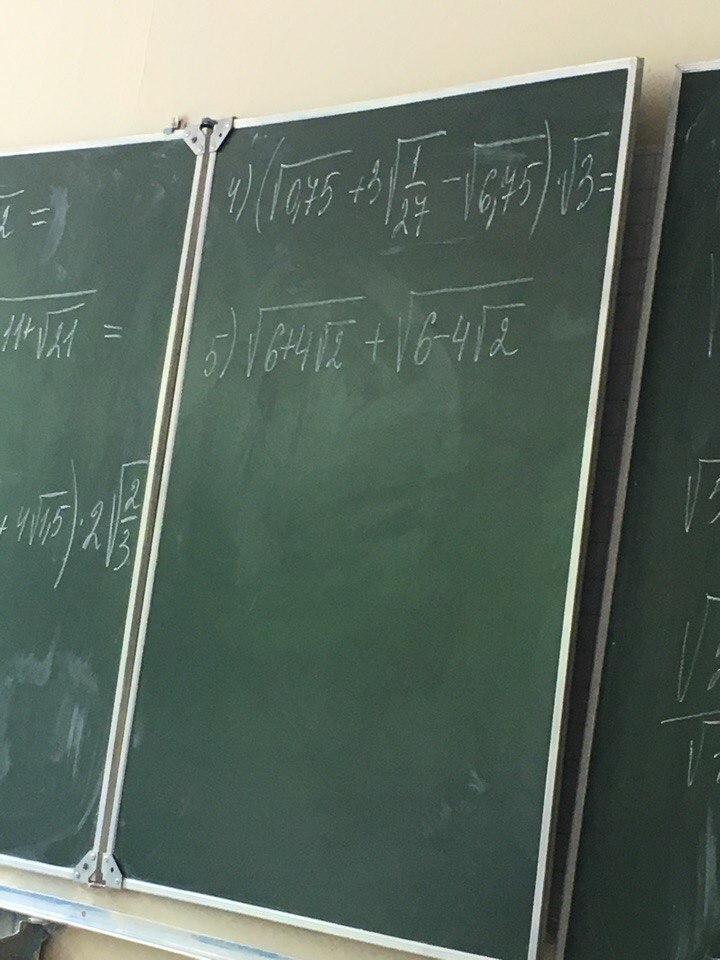 √2 =
11+√21 =
+ 4√1,5) · 2√(2/3)
4) (√0,75 + 3√(1/27) - √6,75) · √3 =
5) √(6+4√2) + √(6-4√2)